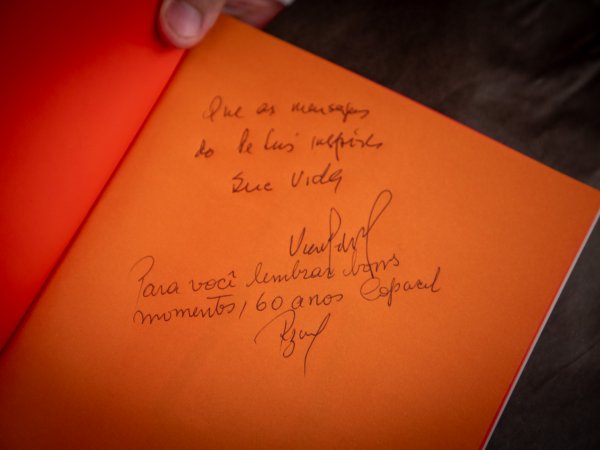 Que as mensagens
do Pe Luis inspirem
sua vida
Para você lembrar bons
momentos, 60 anos Copacol